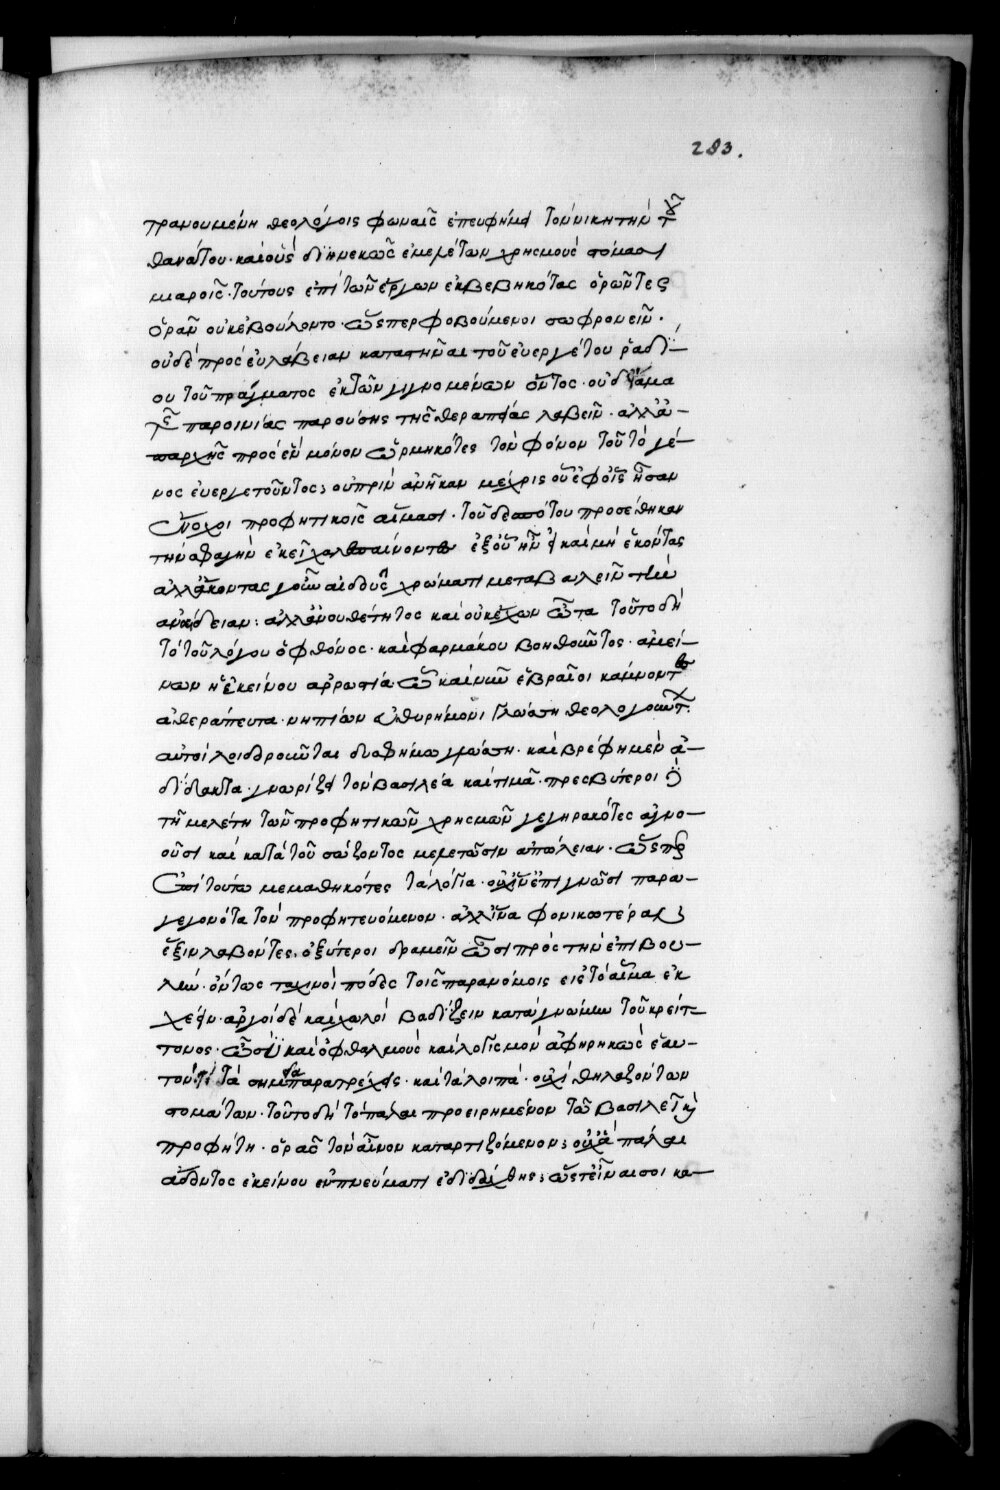 283.
τρανουμένη θεολόγοις φωναῖς ἐπευφήμει τὸν νικητὴν τοῦ
θανάτου· καὶ οὓς διηνεκῶς ἐμελέτων χρησμοὺς στόμασι
μιαροῖς· τούτους ἐπὶ τῶν ἔργων ἐκβεβηκότας ὁρῶντες
ὁρᾶν οὐκ ἐβούλοντο· ὥσπερ φοβούμενοι σωφρονεῖν·
οὐδὲ πρὸς εὐλάβειαν καταστῆναι τοῦ εὐεργέτου ῥαδί–
ου τοῦ πράγματος ἐκ τῶν γιγνομένων ὄντος· οὐδ' ἅμα
τῆς παροινίας παρούσης τῆς θεραπείας λαβεῖν· ἀλλ' ἀ–
παρχῆς πρὸς ἓν μόνον ὡρμηκότες τὸν φόνον τοῦ τὸ γέ–
νος εὐεργετοῦντος; οὐ πρὶν ἀνῆκαν μέχρις οὗ ἐφ' οἷς ἦσαν
ἔνοχοι προφητικοῖς αἵμασι· τοῦ δεσπότου προσέθηκαν
τὴν σφαγὴν ἐκεῖ ἐξ οὗ ἦν καὶ μὴ ἑκόντας
ἀλλ' ἄκοντας γοῦν αἰδοῦς χρώματι μεταβαλεῖν τὴν
ἀναίδειαν: ἀλλ' ἀνουθέτητος καὶ οὐκ ἔχων ὦτα τοῦτο δὴ
τὸ τοῦ λόγου ὁ φθόνος· καὶ φαρμάκου βοηθοῦντος· ἀμεί–
νων ἡ ἐκείνου ἀρρωστία· ὢ καινῶν ἑβραῖοι κάμνοντες
ἀθεράπευτα· νηπίων γλώσση θεολογοῦντ.
αὐτοὶ λοιδοροῦνται διαφήμω γλώσση· καὶ βρέφη μὲν ἀ–
δίδακτα· γνωρίζει τὸν βασιλέα καὶ τιμᾶ· πρεσβύτεροι δὲ
τῆ μελέτη τῶν προφητικῶν χρησμῶν γεγηρακότες ἀγνο–
οῦσι καὶ κατὰ τοῦ σώζοντος μελετῶσιν ἀπώλειαν· ὥσπερ
ἐπὶ τούτω μεμαθηκότες τὰ λόγια· οὐχ ἵν' ἐπιγνῶσι παρα–
γεγονότα τὸν προφητευόμενον· ἀλλ' ἵνα φονικωτέραν
ἕξιν λαβόντες, ὀξύτεροι δραμεῖν ὦσι πρὸς τὴν ἐπιβου–
λήν· ὄντως ταχινοὶ πόδες τοῖς παρανόμοις εἰς τὸ αἷμα ἐκ
χέειν· ἀργοὶ δὲ καὶ χωλοὶ βαδίζειν κατὰ γνώμην τοῦ κρείτ–
τονος· καὶ ὀφθαλμοὺς καὶ λογισμὸν ἀφηρηκὼς ἑαυ–
τὸν τί τὰ σημεῖα παρατρέχεις· καὶ τὰ λοιπά· οὐχὶ θηλαζόντων
στομάτων· τοῦτο δὴ τὸ πάλαι προειρημένον τῶ βασιλεῖ καὶ
προφήτη· ὁρᾶς τὸν αἶνον καταρτιζόμενον; οὐχ ἃ πάλαι
ἄδοντος ἐκείνου ἐν πνεύματι ἐδιδάχθης; ὥστ' εἶναι σοι κα–